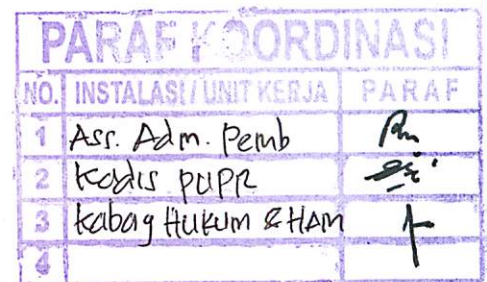 PARAF KOORDINASI
NO. INSTALASI / UNIT KERJA PARAF
1 Ass. Adm. Pemb
2 Kadis PUPR
3 Kabag HUKUM & HAM
4